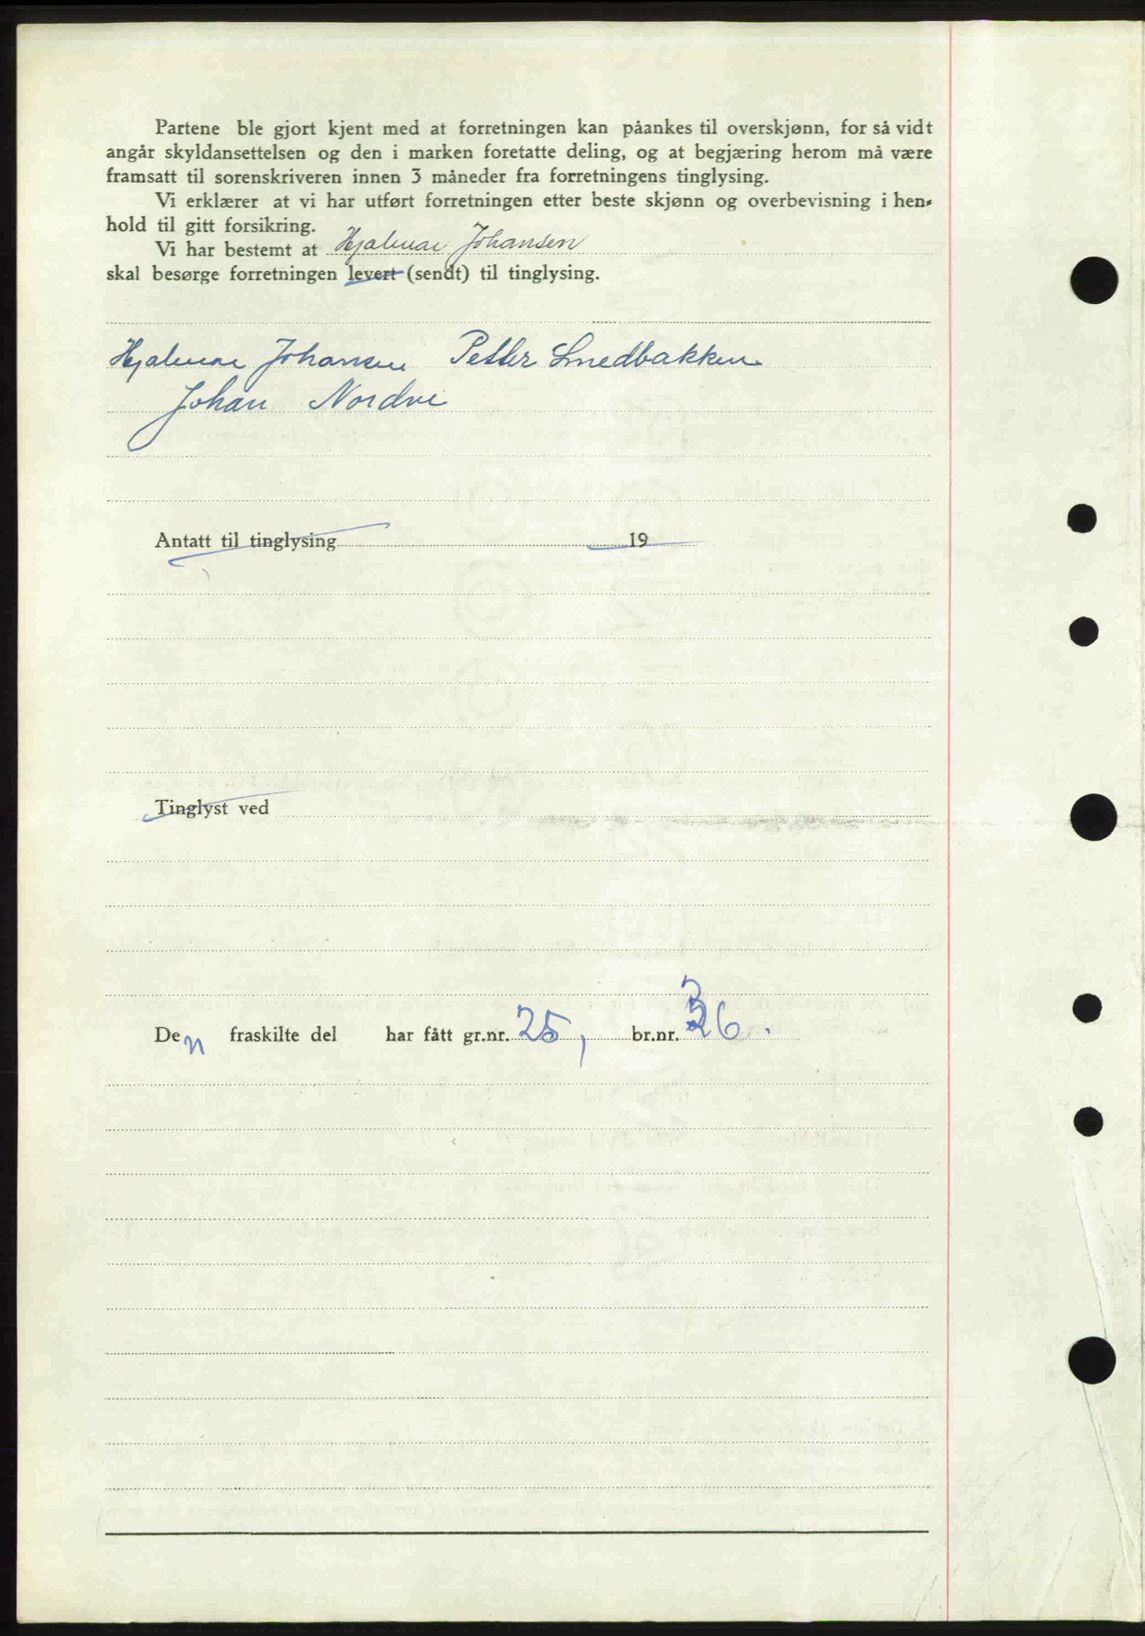 Partene ble gjort kjent med at forretningen kan påankes til overskjønn, for så vidt
angår skyldansettelsen og den i marken foretatte deling, og at begjæring herom må være
framsatt til sorenskriveren innen 3 måneder fra forretningens tinglysing.
Vi erklærer at vi har utført forretningen etter beste skjønn og overbevisning i hen-
hold til gitt forsikring.
Vi har bestemt at Hjalmar Johansen
skal besørge forretningen levert (sendt) til tinglysing.
Hjalmar Johansen Petter Smedbakken
Johan Nordvi
Antatt til tinglysing 19
Tinglyst ved
Den fraskilte del har fått gr.nr. 25, br.nr. 36.